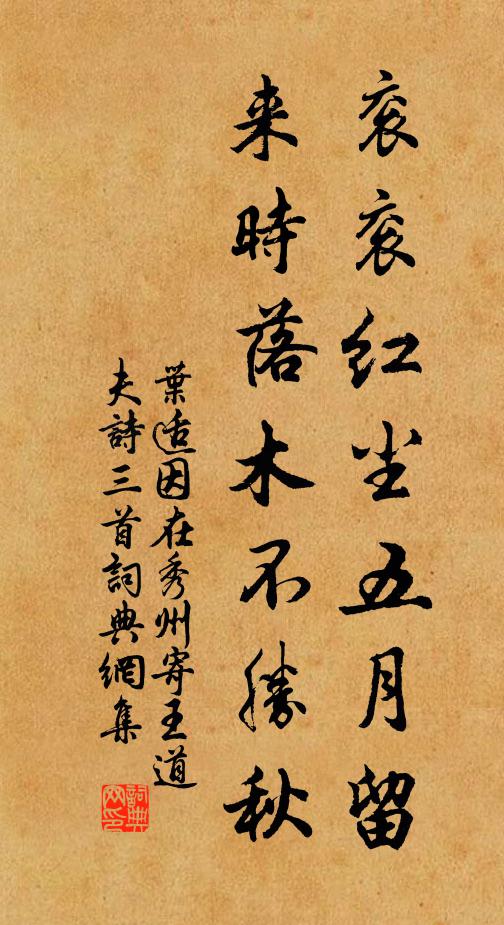 衮衮红尘五月留
来時落木不勝秋
葉适因在秀州寄王道
夫詩三首詞典網集
詞典
网印